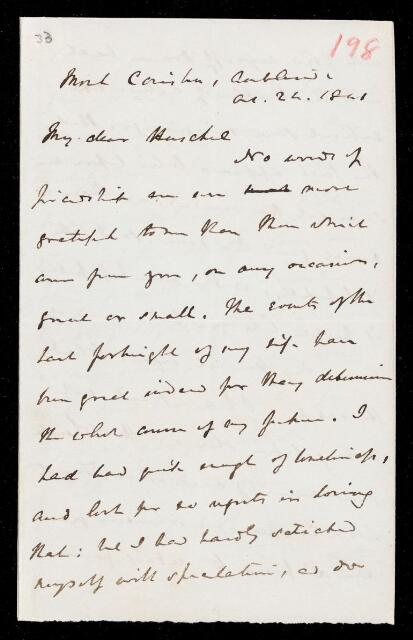 33
198
Carlisle
Oct. 24. 1841
My dear Herschel
No words of
friendship are ever more
grateful to me than those which
come from you, on any occasion,
great or small. The events of the
last fortnight of my life have
been great indeed for they determine
the whole course of my future. I
had had quite enough of loneliness,
and look for no regrets in losing
that: but I had hardly satiated
myself with speculation, as do